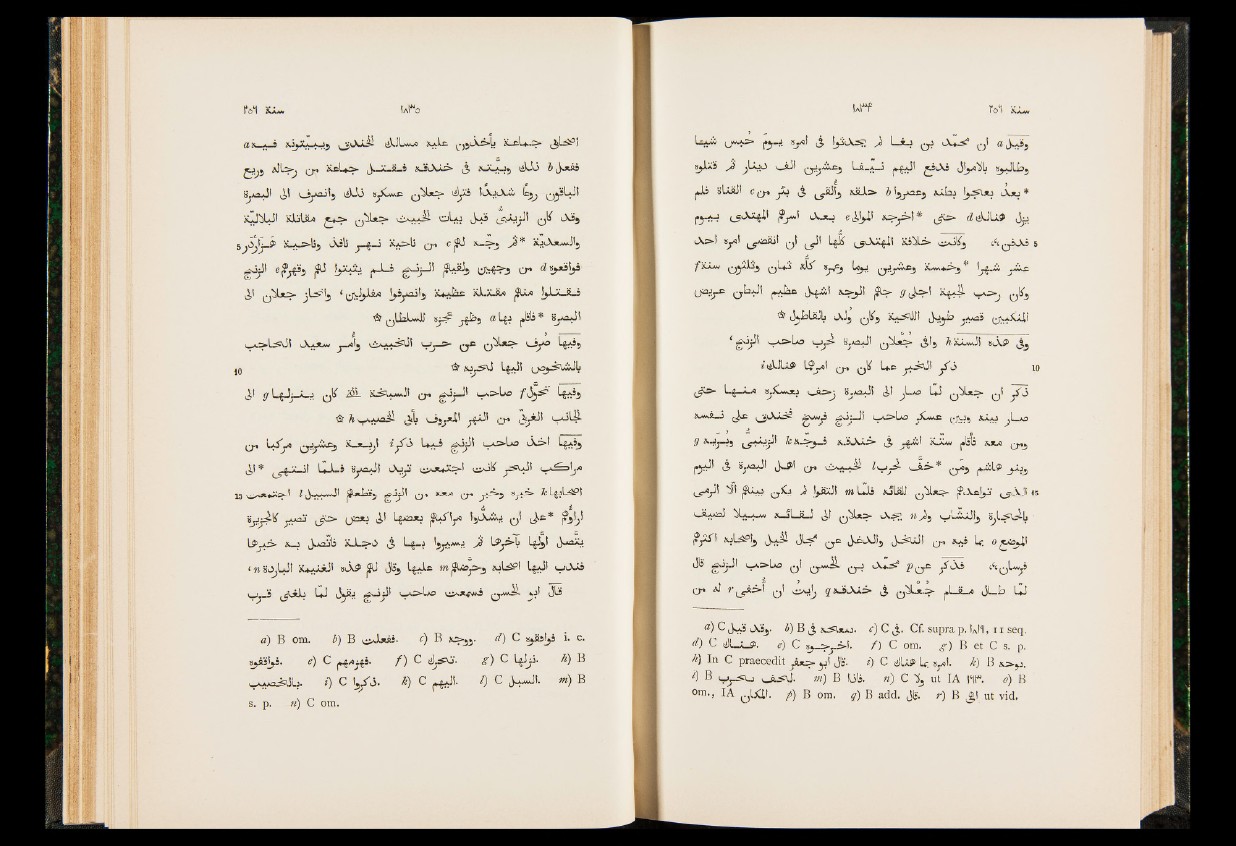 سنة ٢٥٦ ١٨٣۴
وقيل a ان محمّد بن بغا لم يحدثوا فى امره يوم حُبس شيئا
وطالبوه بالاموال فدفع اليهم نيّفا وعشرين الف دينار ثم قتلوه
*بعدُ بعجوا بطنه وعصروا b حلقه وأُلقى فى بئر من c القناة فلم
يزل هنالك d حتى *اخرجه الموالى e بعد اسرهم المهتدى بيوم
5 فدفن، وكانت خلافة المهتدى كلّها الى ان انقضى امره احد
عشر شهرا *وخمسة وعشرين يوما وعمره كلّه ثمان وثلثون سنة f
وكان رحب الجبهة اجلى g جهم الوجه اشهل عظيم البطن عريض
المنكبين قصير طويل اللحية وكان وُلد بالقاطول
وفى هذه السنة h وافى جُعْلان البصرة لحرب صاحب الزنج،
10 ذكر الخبر عما كان من امرها هنالك i
ذُكر ان جعلان لمّا صار الى البصرة زحف بعسكره منها حتى
صار بينه وبين عسكر صاحب الزنج فرسخ فخندق على نفسه
ومن معه فاقام ستّة اشهر فى خندقه فوجّه k الزينبىّ وبُريه g
وبنو هاشم ومن *خفّ لحرب l الخبيث من اهل البصرة فى اليوم
15 الذى تواعدهم جعلان للقائه فلما m التقوا لم يكن بينهم الّا الرمى
بالحجارة والنشّاب ولم n يجد جعلان الى لقائه سبيلا لضيق
الموضع o بما فيه من النخل والدغل عن مجال الخيل واصحابه اكثرهم
فرسان، فذُكر عن p محمّد بن الحسن ان صاحب الزنج قال
لمّا طال مقام جُعْلان فى خندقه q رايتُ ان أُخفى r له من
a) C وقد قيل. b) B فى. c) C فى. Cf. supra p. ١٨١٩, 11 seq.
d) C هناك. e) C اخرجوه. f) C om. g) B et C s. p.
h) In C praecedit قال ابو جعفر. i) C امره ما هناك. k) B بوجه.
l) B. m) B فاذا. n) C ولا ut IA ١٦٣. o) B
om., IA المكان. p) B om. q) B add. قال. r) B ut vid.
١٨٣٥ سنة ٢٥٦
اصحابى جماعة يأخذون عليه مسالك الخندق ويبيّتونه فيه a
ففعل b ذلك وبيّته فى خندقه فقتل جماعة من رجاله وريع
الباقون روعًا شديدًا فترك جعلان عسكره ذلك وانصرف الى البصرة
وقد كان الزينبىّ قبل بيات الخبيث جعلان جمع مقاتلة البلاليّة
5 والسعديّة *ثم وجّه لهم c من ناحية نهر نافذ وناحية هَزارْدَر
فواقعوه d من وجهين ولقيهم الزنج فلم يثبتوا لهم وقهرهم e الزنج
فقتلوا منهم مقتلة عظيمة وانصرفوا مفلولين، وانحاز جعلان الى
البصرة *فاقام بها a وظهر عجزه للسلطان
وفيها صُرف جعلان عن حرب الخبيث وأُمر سعيد الحاجب
10 بالشخوص اليها لحربه
وفيها تحوّل f صاحب الزنج من السبخة التى كان ينزلها g الى
الجانب الغربىّ من النهر المعروف بأبى الخصيب h
وفيها اخذ صاحب الزنج فيما ذُكر i اربعة وعشرين مركبا من
مراكب البحر كانت اجتمعت تريد البصرة فلمّا انتهى *الى
15 اصحابها k خبره وخبر من معه من الزنج وقطعهم السبيل l اجتمعت
اراؤهم *على ان يشدّوا مراكبهم بعضها الى بعض حتى تصير كالجزيرة
يتّصل اوّلها بآخرها ثم يسيروا بها فى دجلة فاتّصل به خبرها
فندب اليها اصحابه وحرّضهم m عليها وقال لهم هذه الغنيمة الباردة n،
قال ابو الحسن فسمعت صاحب الزنج يقول لما بلغنى قرب
a) B om. b) B ففعلت. c) B ووجه. d) C فوافقوه i. e.
فواقفوه. e) C فهزمهم. f) C تحرك. g) C نزلها. h) B
بالخصيب. i) C ذكروا. k) C اليهم. l) C السبل. m) B
s. p. n) C om.